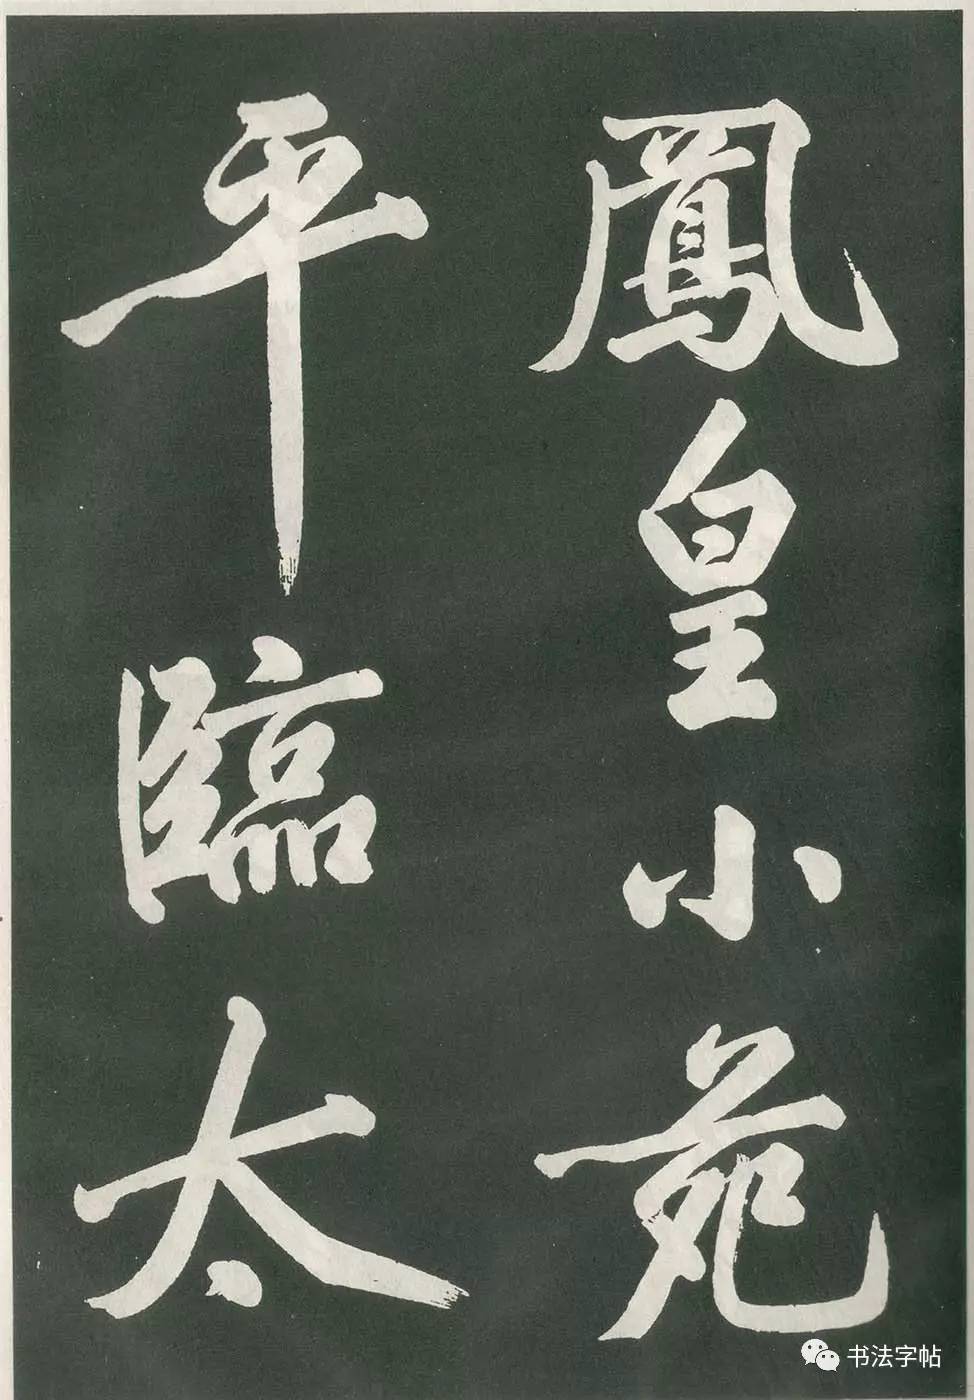 鳳皇小苑
平臨太
书法字帖